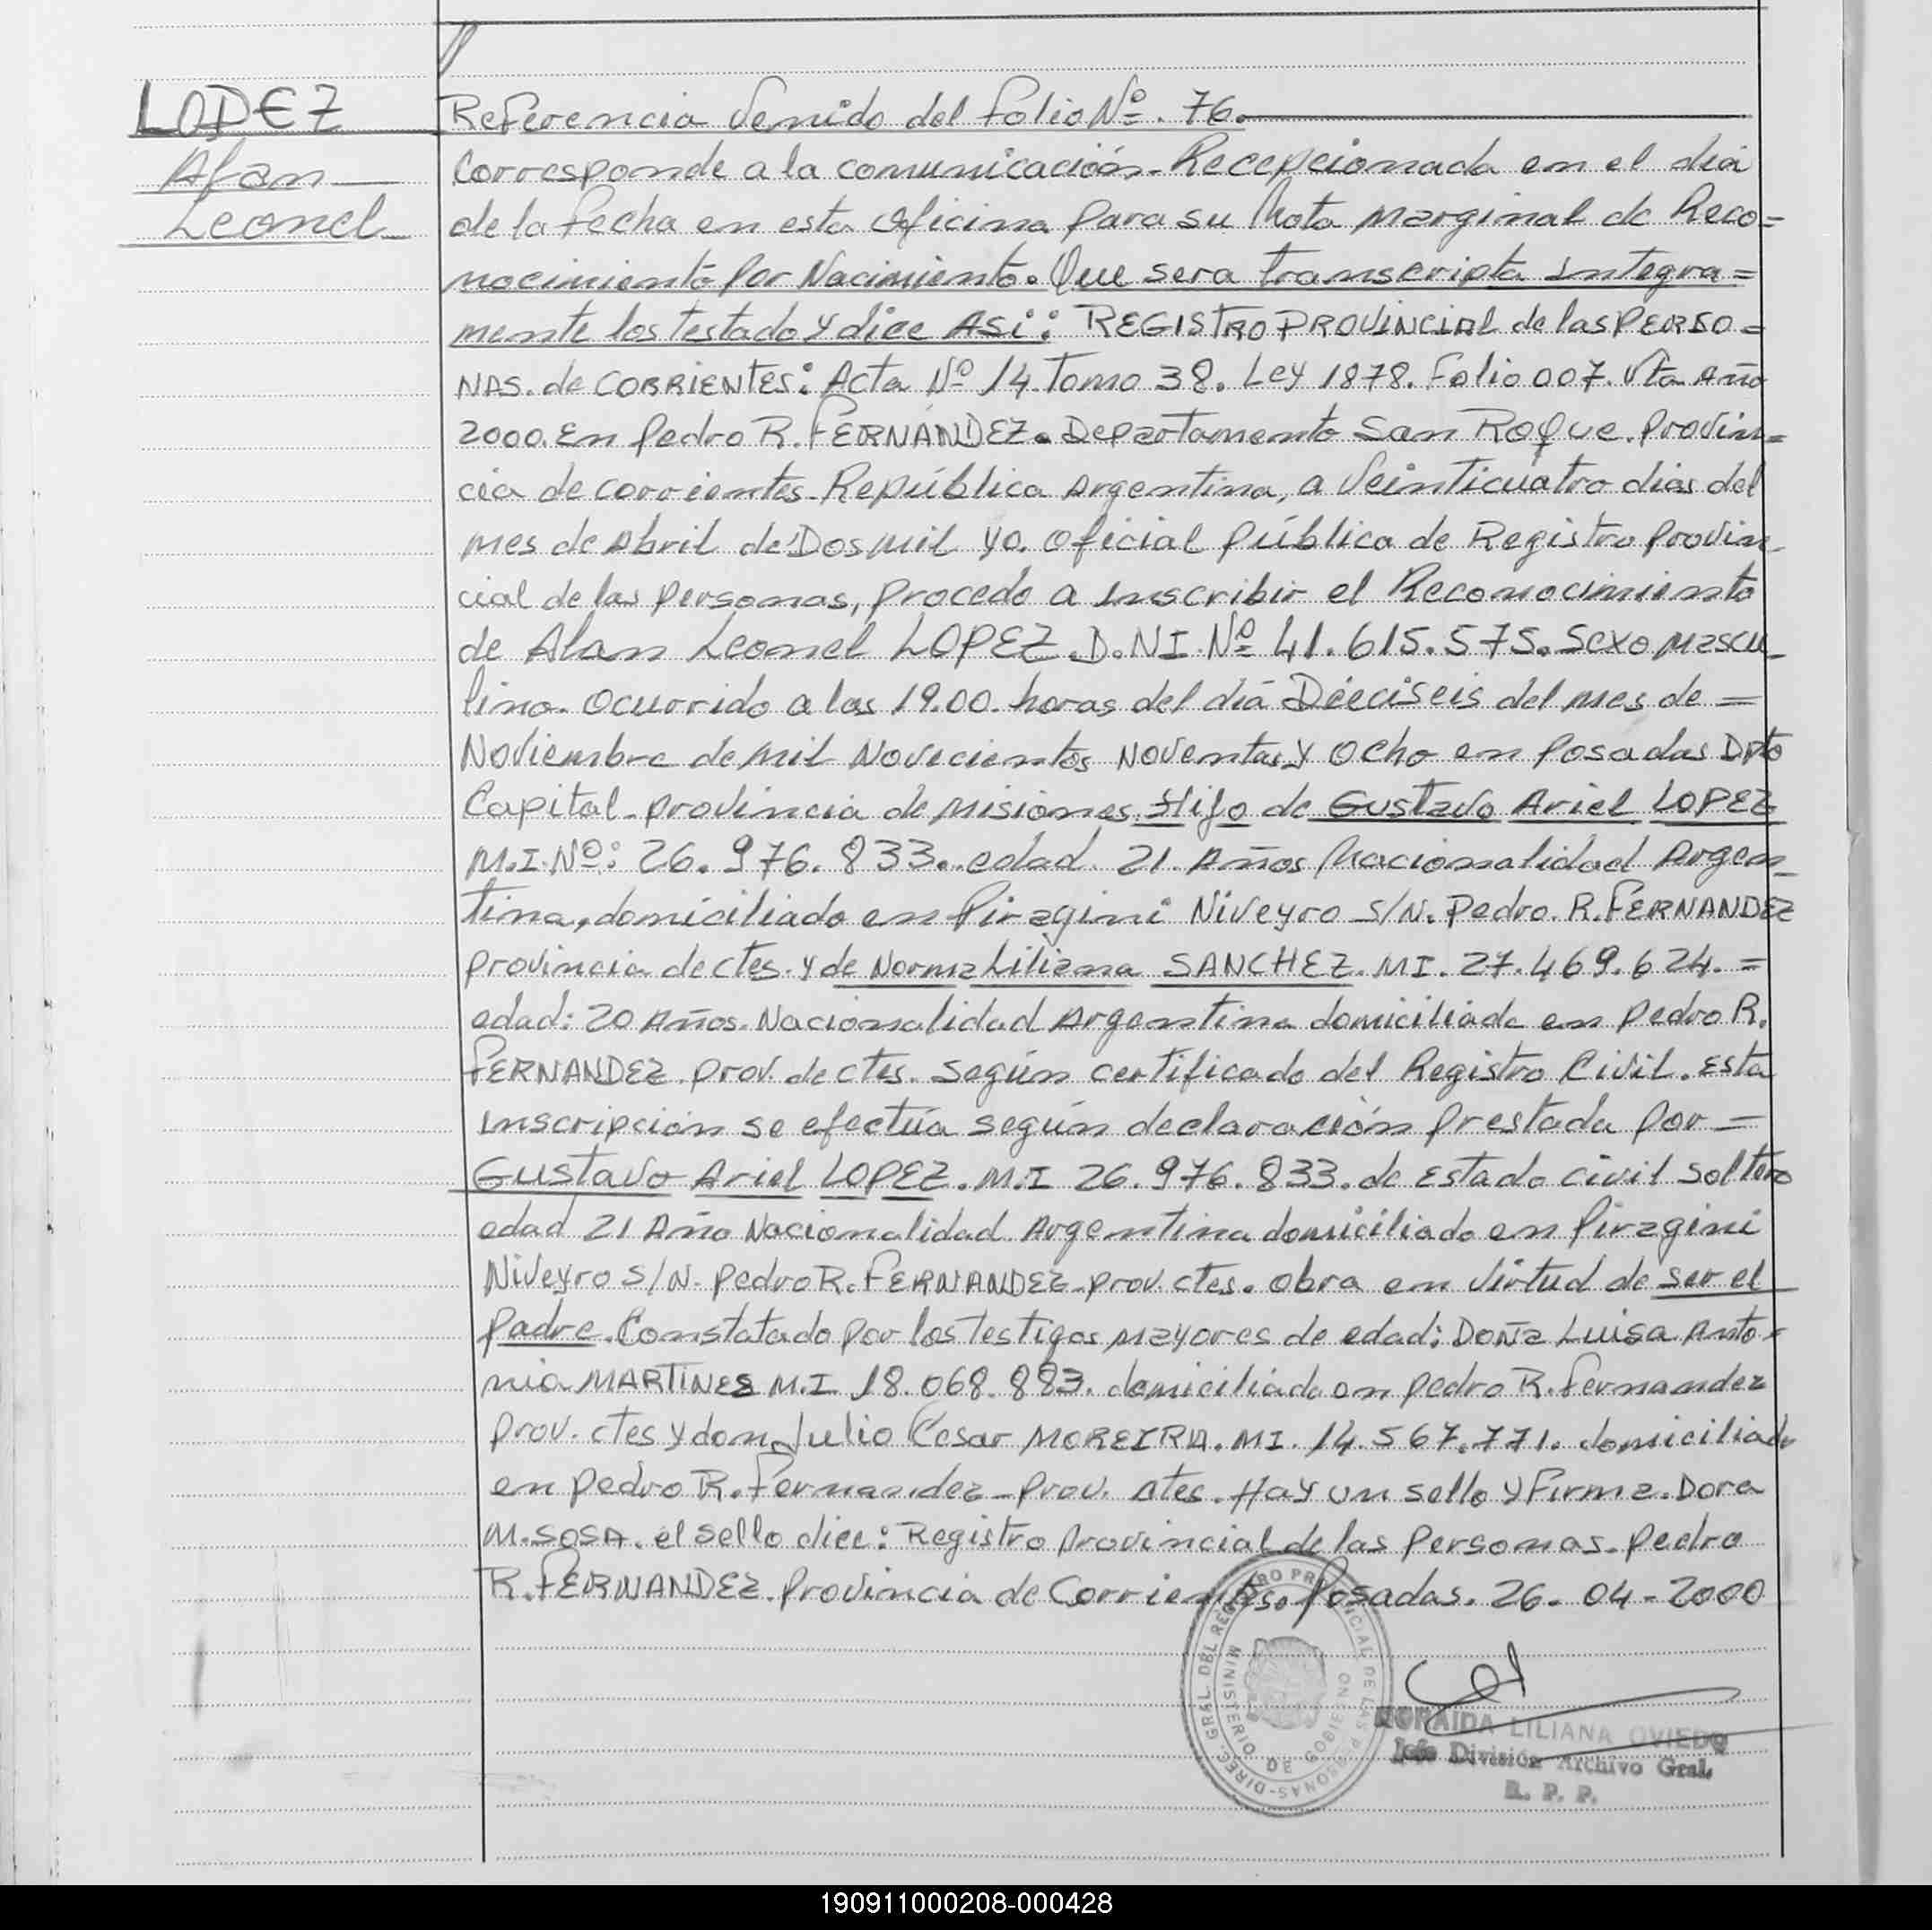 LOPEZ
Alan
Leonel
Referencia Venido del folio Nº. 76.
Corresponde a la comunicación. Recepcionada en el dia
de la fecha en esta Oficina para su Nota Marginal de Reco=
nocimiento por Nacimiento. Que sera transcripta integra=
mente los testado y dice Asi: REGISTRO PROVINCIAL de las PERSO=
NAS. de CORRIENTES: Acta Nº 14. Tomo 38. Ley 1878. Folio 007. Vta Año
2000. En Pedro R. FERNANDEZ. Departamento San Roque. Provin=
cia de corrientes. República Argentina, a Veinticuatro dias del
mes de Abril de Dos mil yo. Oficial Pública de Registro Provin-
cial de las Personas, procedo a inscribir el Reconocimiento
de Alan Leonel LOPEZ. D.NI. Nº 41.615.575. Sexo Mascu-
lino. Ocurrido a las 19.00. horas del día Dieciseis del mes de =
Noviembre de mil Novecientos Noventa y Ocho en Posadas Dpto
Capital. provincia de Misiones. Hijo de Gustavo Ariel LOPEZ
M.I. Nº: 26.976.833. edad. 21. Años Nacionalidad Argen-
tina, domiciliado en Piragini Niveyro S/N. Pedro. R. FERNANDEZ
provincia de ctes. y de Norma Liliana SANCHEZ. MI. 27.469.624. =
edad: 20 Años. Nacionalidad Argentina domiciliada en Pedro R.
FERNANDEZ. Prov. de ctes. Según certificado del Registro Civil. Esta
inscripción se efectúa según declaración prestada por =
Gustavo Ariel LOPEZ. M.I 26.976.833. de estado civil soltero
edad 21 Año Nacionalidad Argentina domiciliado en Piragini
Niveyro S/N. Pedro R. FERNANDEZ. prov. ctes. obra en virtud de ser el
Padre. Constatado por los testigos mayores de edad: Doña Luisa Anto-
nia MARTINES M.I 18.068.883. domiciliada en Pedro R. Fernandez
Prov. ctes y don Julio Cesar MOREIRA. MI. 14.567.771. domiciliado
en Pedro R. Fernandez - Prov. ctes. Hay un sello y Firma. Dora
M. SOSA. el sello dice: Registro Provincial de las Personas. Pedro
R. FERNANDEZ. Provincia de Corrientes. Posadas. 26. 04 - 2000
DIREC. GRAL. DEL REGISTRO PROVINCIAL DE LAS PERSONAS
MINISTERIO DE GOBIERNO
ZORAIDA LILIANA OVIEDO
Jefe División Archivo Gral.
R. P. P.
190911000208-000428